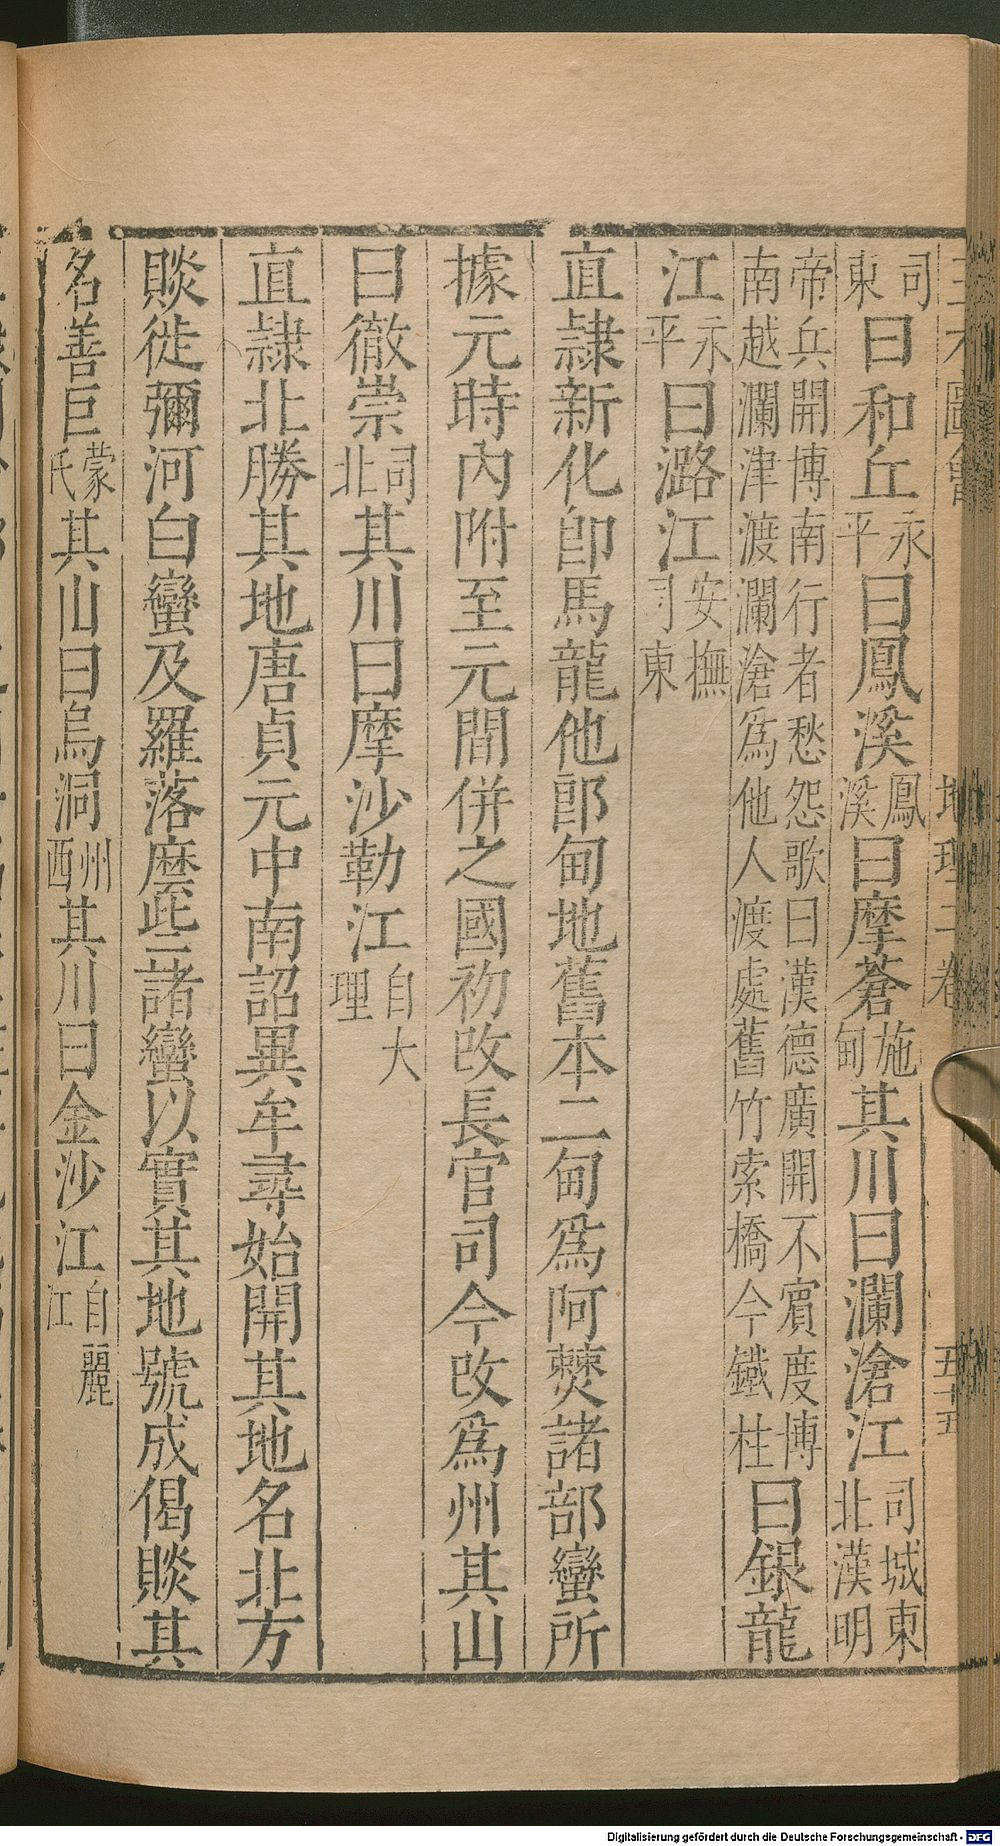 司東曰和丘永平曰鳳溪鳳溪曰摩蒼施甸其川曰瀾滄江司城東北漢明
帝兵開博南行者愁怨歌曰漢德廣開不賓度博南越瀾津渡瀾滄爲他人渡處舊竹索橋今鐵柱曰銀龍
江永平曰潞江安撫司東
直隷新化卽馬龍他郎甸地舊本二甸爲阿僰諸部蠻所
據元時內附至元間併之國初改長官司今改爲州其山
曰徹崇司北其川曰摩沙勒江自大理
直隷北勝其地唐貞元中南詔異牟尋始開其地名北方
賧徙彌河白蠻及羅落麽些諸蠻以實其地號成偈賧其
名善巨蒙氏其山曰烏洞州西其川曰金沙江自麗江
地理二卷
五十五
Digitalisierung gefördert durch die Deutsche Forschungsgemeinschaft - DFG